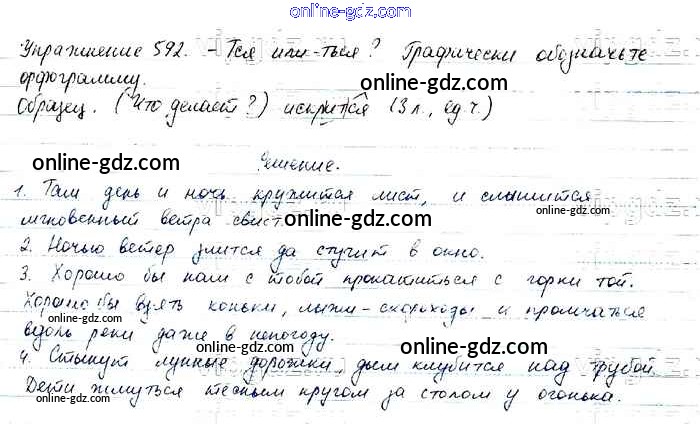 online-gdz.com
Упражнение 592. -Тся или -ться? Графически обозначьте
орфограмму.
online-gdz.com
Образец. (Что делает?) искрится (3 л., ед. ч.)
online-gdz.com
Решение.
online-gdz.com
1. Там день и ночь кружится лист, и слышится
мгновенный ветра свист.
online-gdz.com
online-gdz.com
2. Ночью ветер злится да стучит в окно.
3. Хорошо бы нам с тобой прокатиться с горки той.
Хорошо бы взять коньки, лыжи-скороходы и промчаться
online-gdz.com
вдоль реки даже в непогоду.
online-gdz.com
4. Стынут лунные дорожки, дым клубится над трубой.
Дети жмутся тесным кругом за столом у огонька.
online-gdz.com
online-gdz.com